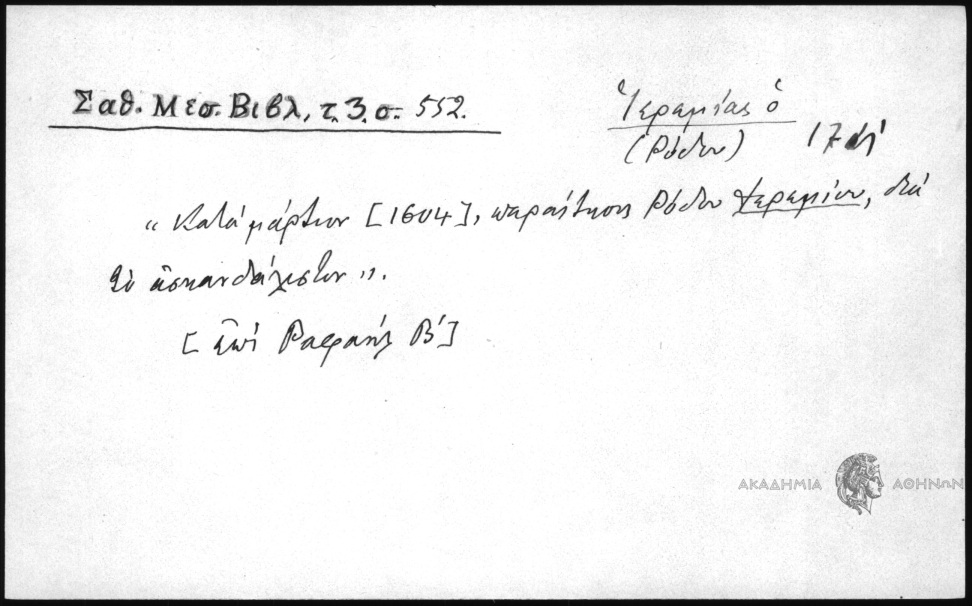 Σαθ. Μεσ. Βιβλ, τ. 3. σ. 552.
Ἱερεμίας ὁ
(Ρόδου) 17
" Κατὰ μάρτιον [1604], παραίτησις Ρόδου Ἱερεμίου, διὰ
τὸ ἀσκανδάλιστον ".
[ ἐπὶ Ραφαὴλ Β΄]
ΑΚΑΔΗΜΙΑ ΑΘΗΝΩΝ